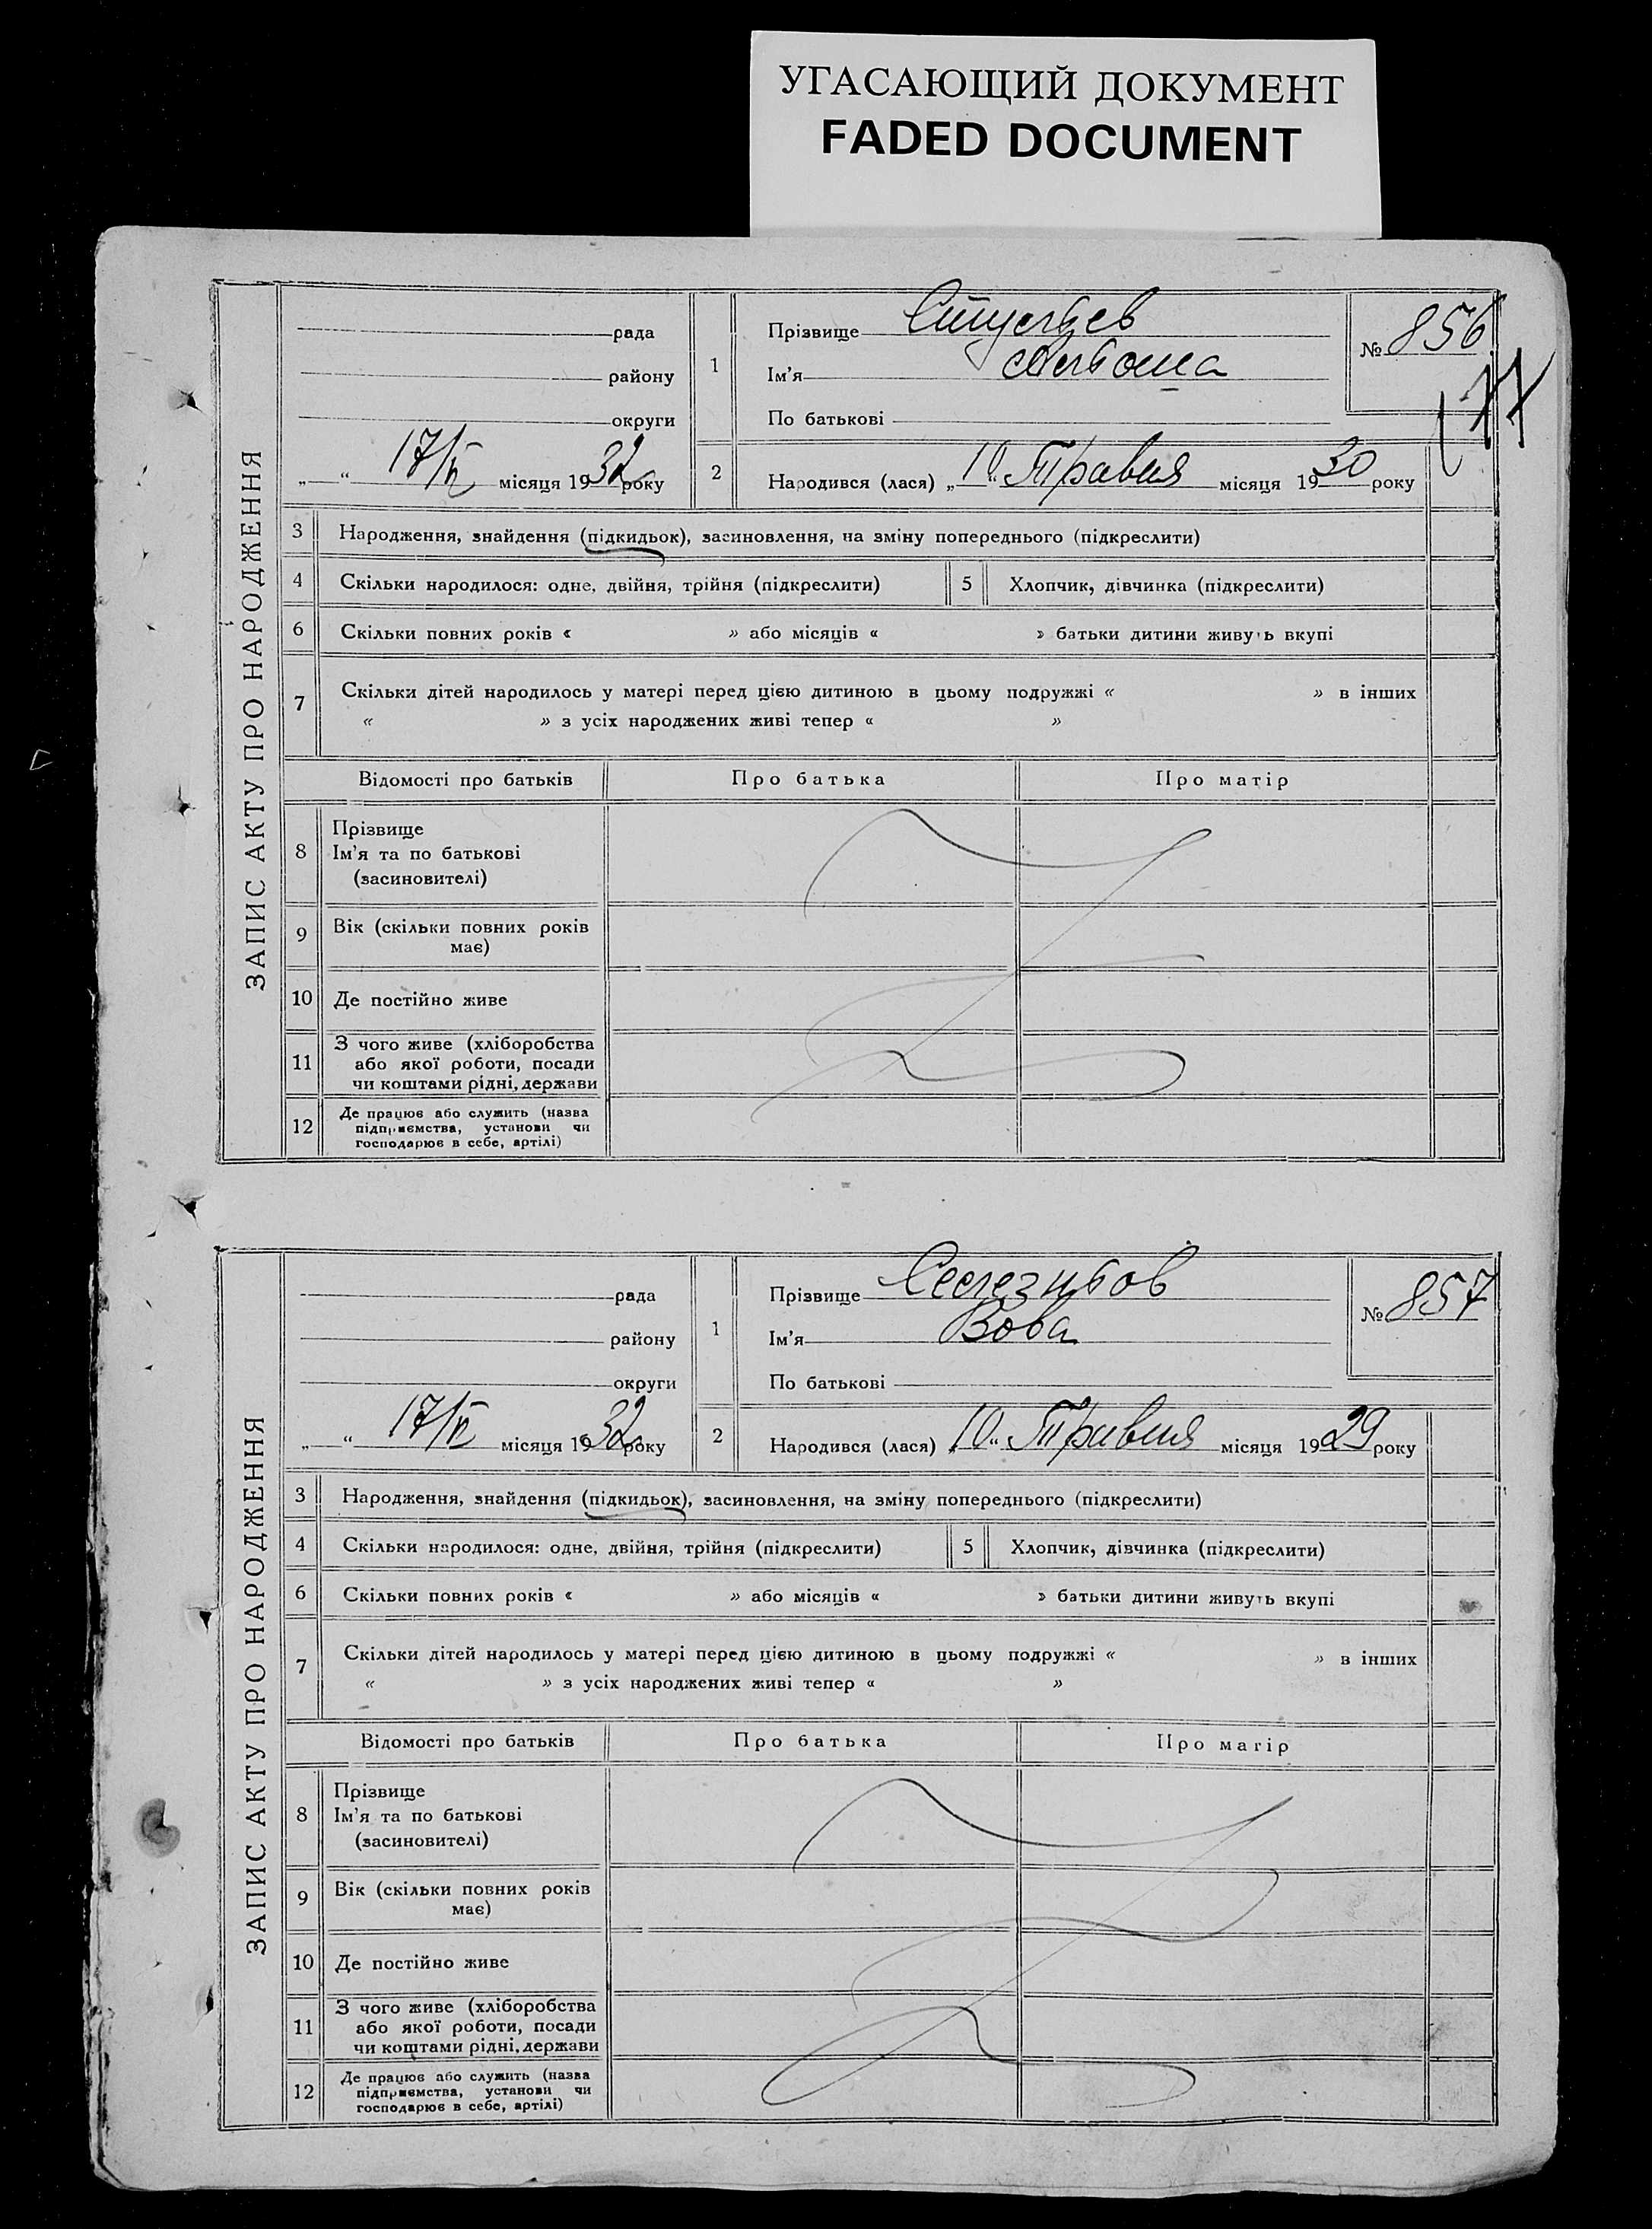 УГАСАЮЩИЙ ДОКУМЕНТ
FADED DOCUMENT
ЗАПИС АКТУ ПРО НАРОДЖЕННЯ
рада
району
округи
„ “ 17/V місяця 1932 року
1
Прізвище
Ім'я
По батькові
№ 856
2
Народився (лася) „10“ Травня місяця 1930 року
3 Народження, знайдення (підкидьок), засиновлення, на зміну попереднього (підкреслити)
4 Скільки народилося: одне, двійня, трійня (підкреслити) 5 Хлопчик, дівчинка (підкреслити)
6 Скільки повних років « » або місяців « » батьки дитини живуть вкупі
7 Скільки дітей народилось у матері перед цією дитиною в цьому подружжі « » в інших
« » з усіх народжених живі тепер « »
Відомості про батьків Про батька Про матір
8 Прізвище
Ім'я та по батькові
(засиновителі)
9 Вік (скільки повних років
має)
10 Де постійно живе
11 З чого живе (хліборобства
або якої роботи, посади
чи коштами рідні, держави
12 Де працює або служить (назва
підприємства, установи чи
господарює в себе, артілі)
ЗАПИС АКТУ ПРО НАРОДЖЕННЯ
рада
району
округи
„ “ 17/V місяця 1932 року
1
Прізвище
Ім'я Вова
По батькові
№ 857
2
Народився (лася) „10“ Травня місяця 1929 року
3 Народження, знайдення (підкидьок), засиновлення, на зміну попереднього (підкреслити)
4 Скільки народилося: одне, двійня, трійня (підкреслити) 5 Хлопчик, дівчинка (підкреслити)
6 Скільки повних років « » або місяців « » батьки дитини живуть вкупі
7 Скільки дітей народилось у матері перед цією дитиною в цьому подружжі « » в інших
« » з усіх народжених живі тепер « »
Відомості про батьків Про батька Про матір
8 Прізвище
Ім'я та по батькові
(засиновителі)
9 Вік (скільки повних років
має)
10 Де постійно живе
11 З чого живе (хліборобства
або якої роботи, посади
чи коштами рідні, держави
12 Де працює або служить (назва
підприємства, установи чи
господарює в себе, артілі)